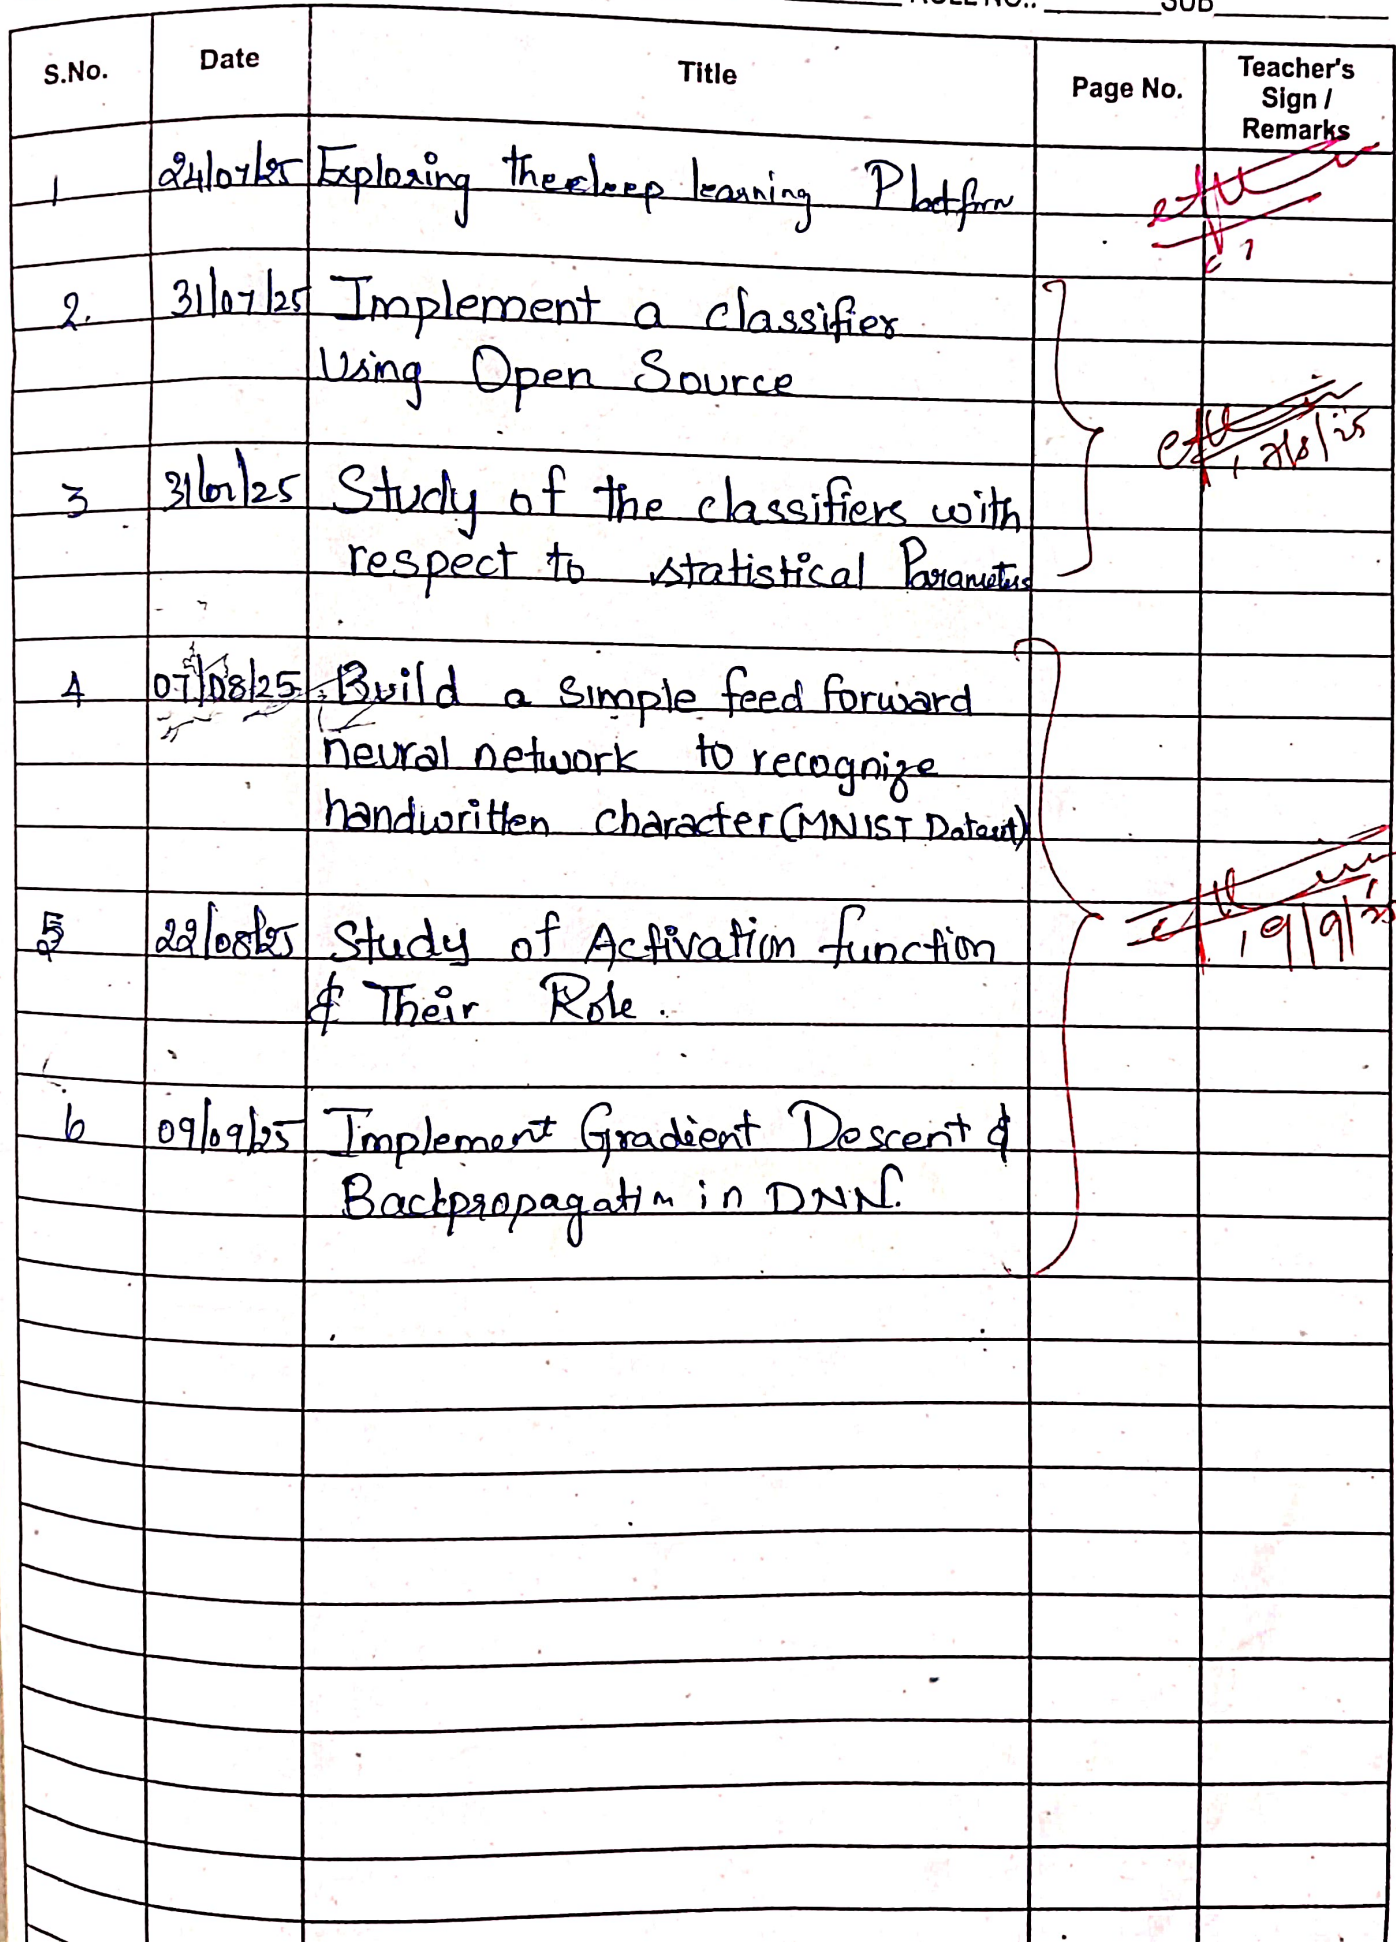 ROLL NO.: SUB
S.No. Date Title Page No. Teacher's Sign / Remarks
1 24/07/25 Exploring the deep learning Platform
2. 31/07/25 Implement a classifier
Using Open Source
3 31/07/25 Study of the classifiers with
respect to statistical Parameters
4 07/08/25 Build a simple feed forward
neural network to recognize
handwritten character (MNIST Dataset)
5 22/08/25 Study of Activation function
& Their Role.
19/9/25
6 09/09/25 Implement Gradient Descent &
Backpropagation in DNN.